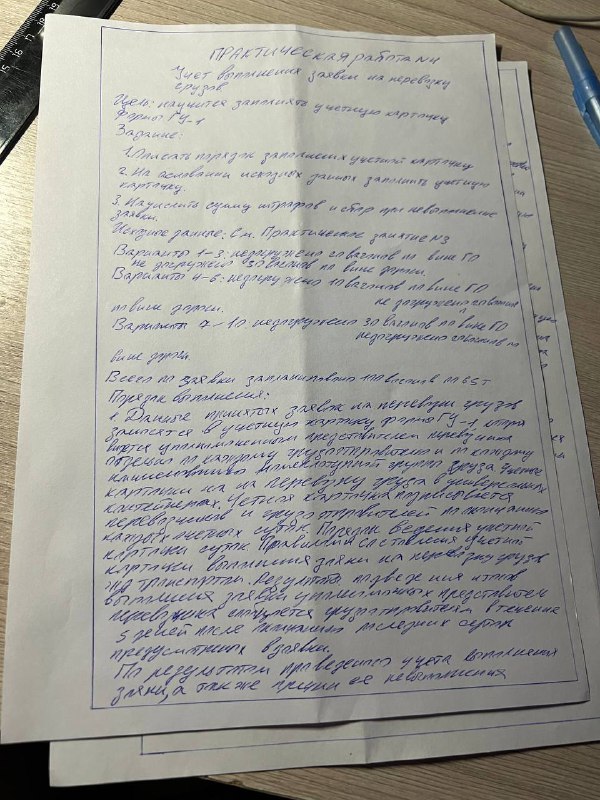 ПРАКТИЧЕСКАЯ работа №4
Учет выполнения заявки на перевозку
грузов
Цель: научится заполнять учетную карточку
формы ГУ-1
Задание:
1. Описать порядок заполнения учетной карточки
2. На основании исходных данных заполнить учетную
карточку.
3. Начислить сумму штрафов и сбор при невыполнение
заявки.
Исходные данные: см. Практическое занятие №3
Варианты 1-3: недогружено 20 вагонов по вине ГО
не загружено 30 вагонов по вине дороги.
Варианты 4-6: недогружено 10 вагонов по вине ГО
не загружено вагонов
по вине дороги.
Варианты 7-10: недогружено 30 вагонов по вине ГО
недогружено вагонов по
вине дороги
Всего по заявки запланировано вагонов по 65т
Порядок выполнения:
1. Данные принятых заявок на перевозки грузов
заносятся в учетную карточку формы ГУ-1, которая
ведется уполномоченным представителем перевозчика
отдельно по каждому грузоотправителю и по каждому
наименованию номенклатурной группы груза учетные
карточки на перевозку груза в универсальных
контейнерах. Учетная карточка подписывается
перевозчиком и грузоотправителем по окончанию
каждых отчетных суток. Порядок ведения учетной
карточки суток Правилами составления учетной
карточки выполнения заявки на перевозку грузов
жд транспортом. Результаты подведения итогов
выполнения заявки уполномоченных представителем
перевозчика сообщается грузоотправителям в течение
5 дней после окончания последних суток
предусмотрена в заявки.
По результатам проведенного учета выполнения
заявки, а также ее невыполнения